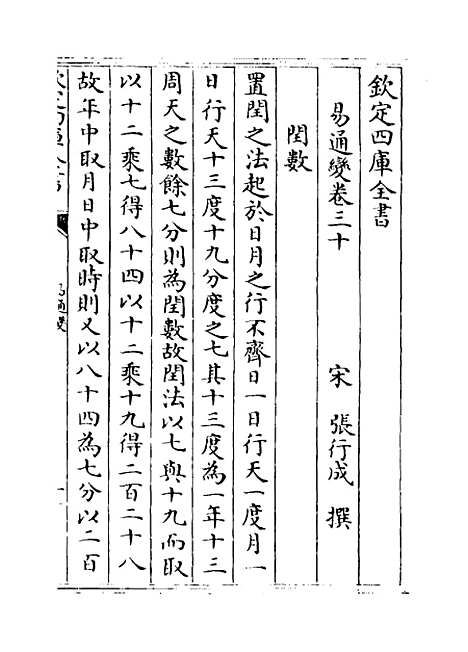 欽定四庫全書
易通變卷三十
宋 張行成 撰
閏數
置閏之法起於日月之行不齊日一日行天一度月一
日行天十三度十九分度之七其十三度為一年十三
周天之數餘七分則為閏數故閏法以七與十九而取
以十二乘七得八十四以十二乘十九得二百二十八
故年中取月日中取時則又以八十四為七分以二百
易通變